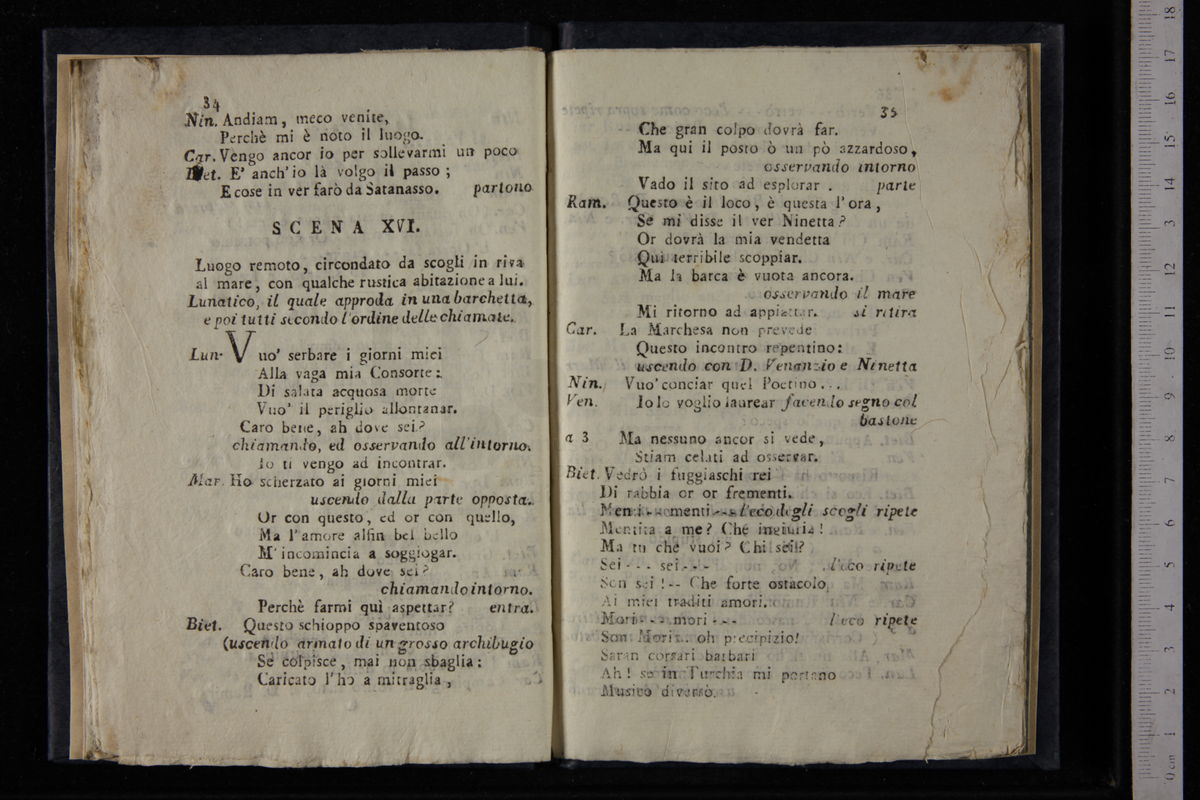 34
Nin. Andiam, meco venite,
Perchè mi è noto il luogo.
Car. Vengo ancor io per sollevarmi un poco
Biet. E' anch'io là volgo il passo;
E cose in ver farò da Satanasso. partono
SCENA XVI.
Luogo remoto, circondato da scogli in riva
al mare, con qualche rustica abitazione a lui.
Lunatico, il quale approda in una barchetta,
e poi tutti secondo l'ordine delle chiamate.
Lun. Vuo' serbare i giorni miei
Alla vaga mia Consorte:
Di salata acquosa morte
Vuo' il periglio allontanar.
Caro bene, ah dove sei?
chiamando, ed osservando all'intorno.
Io ti vengo ad incontrar.
Mar. Ho scherzato ai giorni miei
uscendo dalla parte opposta.
Or con questo, ed or con quello,
Ma l'amore alfin bel bello
M'incomincia a soggiogar.
Caro bene, ah dove sei?
chiamando intorno.
Perchè farmi quì aspettar? entra.
Biet. Questo schioppo spaventoso
(uscendo armato di un grosso archibugio
Se colpisce, mai non sbaglia:
Caricato l'ho a mitraglia,
35
Che gran colpo dovrà far.
Ma qui il posto ò un pò azzardoso,
osservando intorno
Vado il sito ad esplorar. parte
Ram. Questo è il loco, è questa l'ora,
Se mi disse il ver Ninetta?
Or dovrà la mia vendetta
Qui terribile scoppiar.
Ma la barca è vuota ancora.
osservando il mare
Mi ritorno ad appiattar. si ritira
Car. La Marchesa non prevede
Questo incontro repentino:
uscendo con D. Venanzio e Ninetta
Nin. Vuo' conciar quel Poetino...
Ven. Io lo voglio laurear facendo segno col
bastone
a 3 Ma nessuno ancor si vede,
Stiam celati ad osservar.
Biet. Vedrò i fuggiaschi rei
Di rabbia or or frementi.
Menti---menti---l'eco degli scogli ripete
Mentita a me? Che ingiuria!
Ma tu che vuoi? Chi sei?
Sei--- sei--- l'eco ripete
Son sei!-- Che forte ostacolo
Ai miei traditi amori.
Mori--- mori--- l'eco ripete
Son Mori.. oh precipizio!
Saran corsari barbari
Ah! se in Turchia mi portano
Musico diverso.